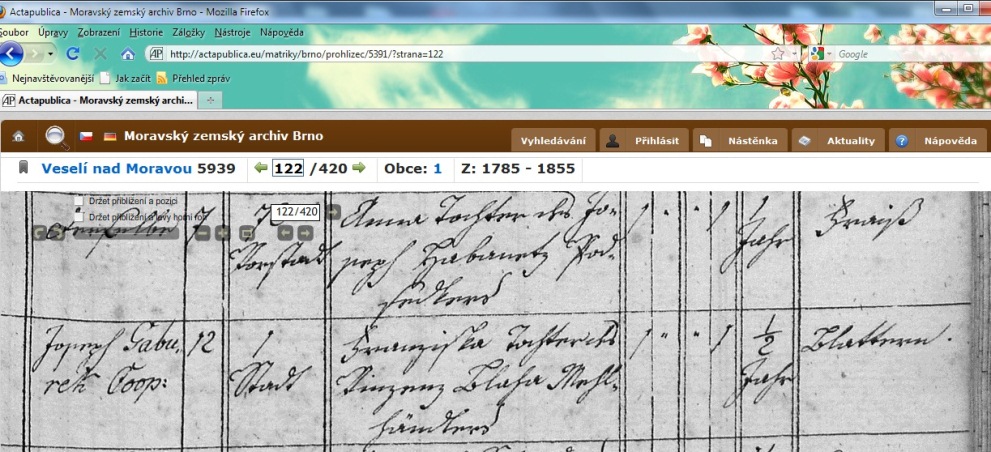 Actapublica - Moravský zemský archiv Brno - Mozilla Firefox
Soubor Úpravy Zobrazení Historie Záložky Nástroje Nápověda
http://actapublica.eu/matriky/brno/prohlizec/5391/?strana=122
Google
Nejnavštěvovanější Jak začít Přehled zpráv
AP Actapublica - Moravský zemský archi...
Moravský zemský archiv Brno
Vyhledávání Přihlásit Nástěnka Aktuality Nápověda
Veselí nad Moravou 5939 122 /420 Obce: 1 Z: 1785 - 1855
Držet přiblížení a pozici
Držet přiblížení a levý horní roh
122/420
7 Anna Tochter des Jo- 1 " " 1 1 Fraiß
Vorstadt seph Habanetz Pod- Jahr
sedlkers
Joseph Gabu, 12 1 Franziska Tochter des 1 " " 1 1/2 Blattern.
rek Coop: Stadt Vinzenz Blaha Mehl- Jahr
händlers